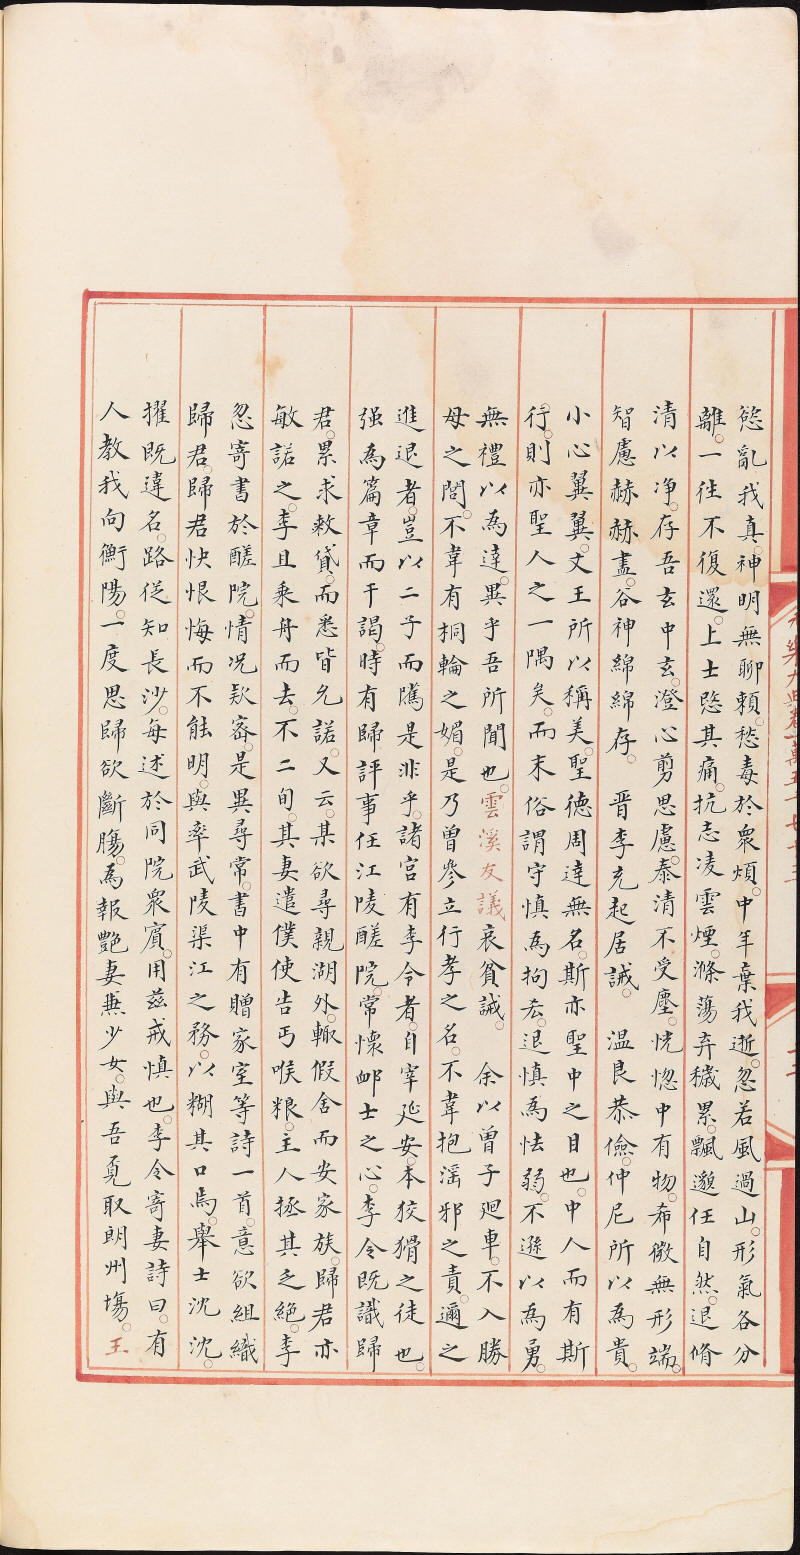 慾亂我真。神明無聊賴。愁毒於衆煩。中年棄我逝。忽若風過山。形氣各分
離。一往不復還。上士愍其痛。抗志凌雲煙。滌蕩弃穢累。飄邈任自然。退脩
清以净。存吾玄中玄。澄心剪思慮。泰清不受塵。恍惚中有物。希微無形端。
智慮赫赫盡。谷神綿綿存。 晋李充起居誡。 温良恭儉。仲尼所以為貴。
小心翼翼。文王所以稱美。聖德周達無名。斯亦聖中之目也。中人而有斯
行。則亦聖人之一隅矣。而末俗謂守慎為拘𠫤。退慎為怯弱。不遜以為勇。
無禮以為達。異乎吾所聞也。雲溪友議哀貧誡。 余以曾子廻車。不入勝
母之閭。不韋有桐輪之媚。是乃曾參立行孝之名。不韋抱滛邪之責。邇之
進退者。豈以二子而隲是非乎。諸宫有李令者。自宰延安。本狡猾之徒也。
强為篇章而干謁。時有歸評事任江陵醝院。常懷䘏士之心。李令既識歸
君。累求救貸。而悉皆允諾。又云。某欲尋親湖外。輙假舍而安家族。歸君亦
敏諾之。李且乘舟而去。不二旬。其妻遣僕使告丐喉粮。主人拯其乏絶。李
忽寄書於醝院。情况欵密。是異尋常。書中有贈家室等詩一首。意欲組織
歸君。歸君怏恨悔而不能明。與率武陵渠江之務。以糊其口焉。舉士沈沈。
擢既違名。路從知長沙。每述於同院衆賓。用兹戒慎也。李令寄妻詩曰。有
人教我向衡陽。一度思歸欲斷膓。為報艷妻兼少女。與吾覔取朗州塲。王
永樂大典卷一萬五千七十三